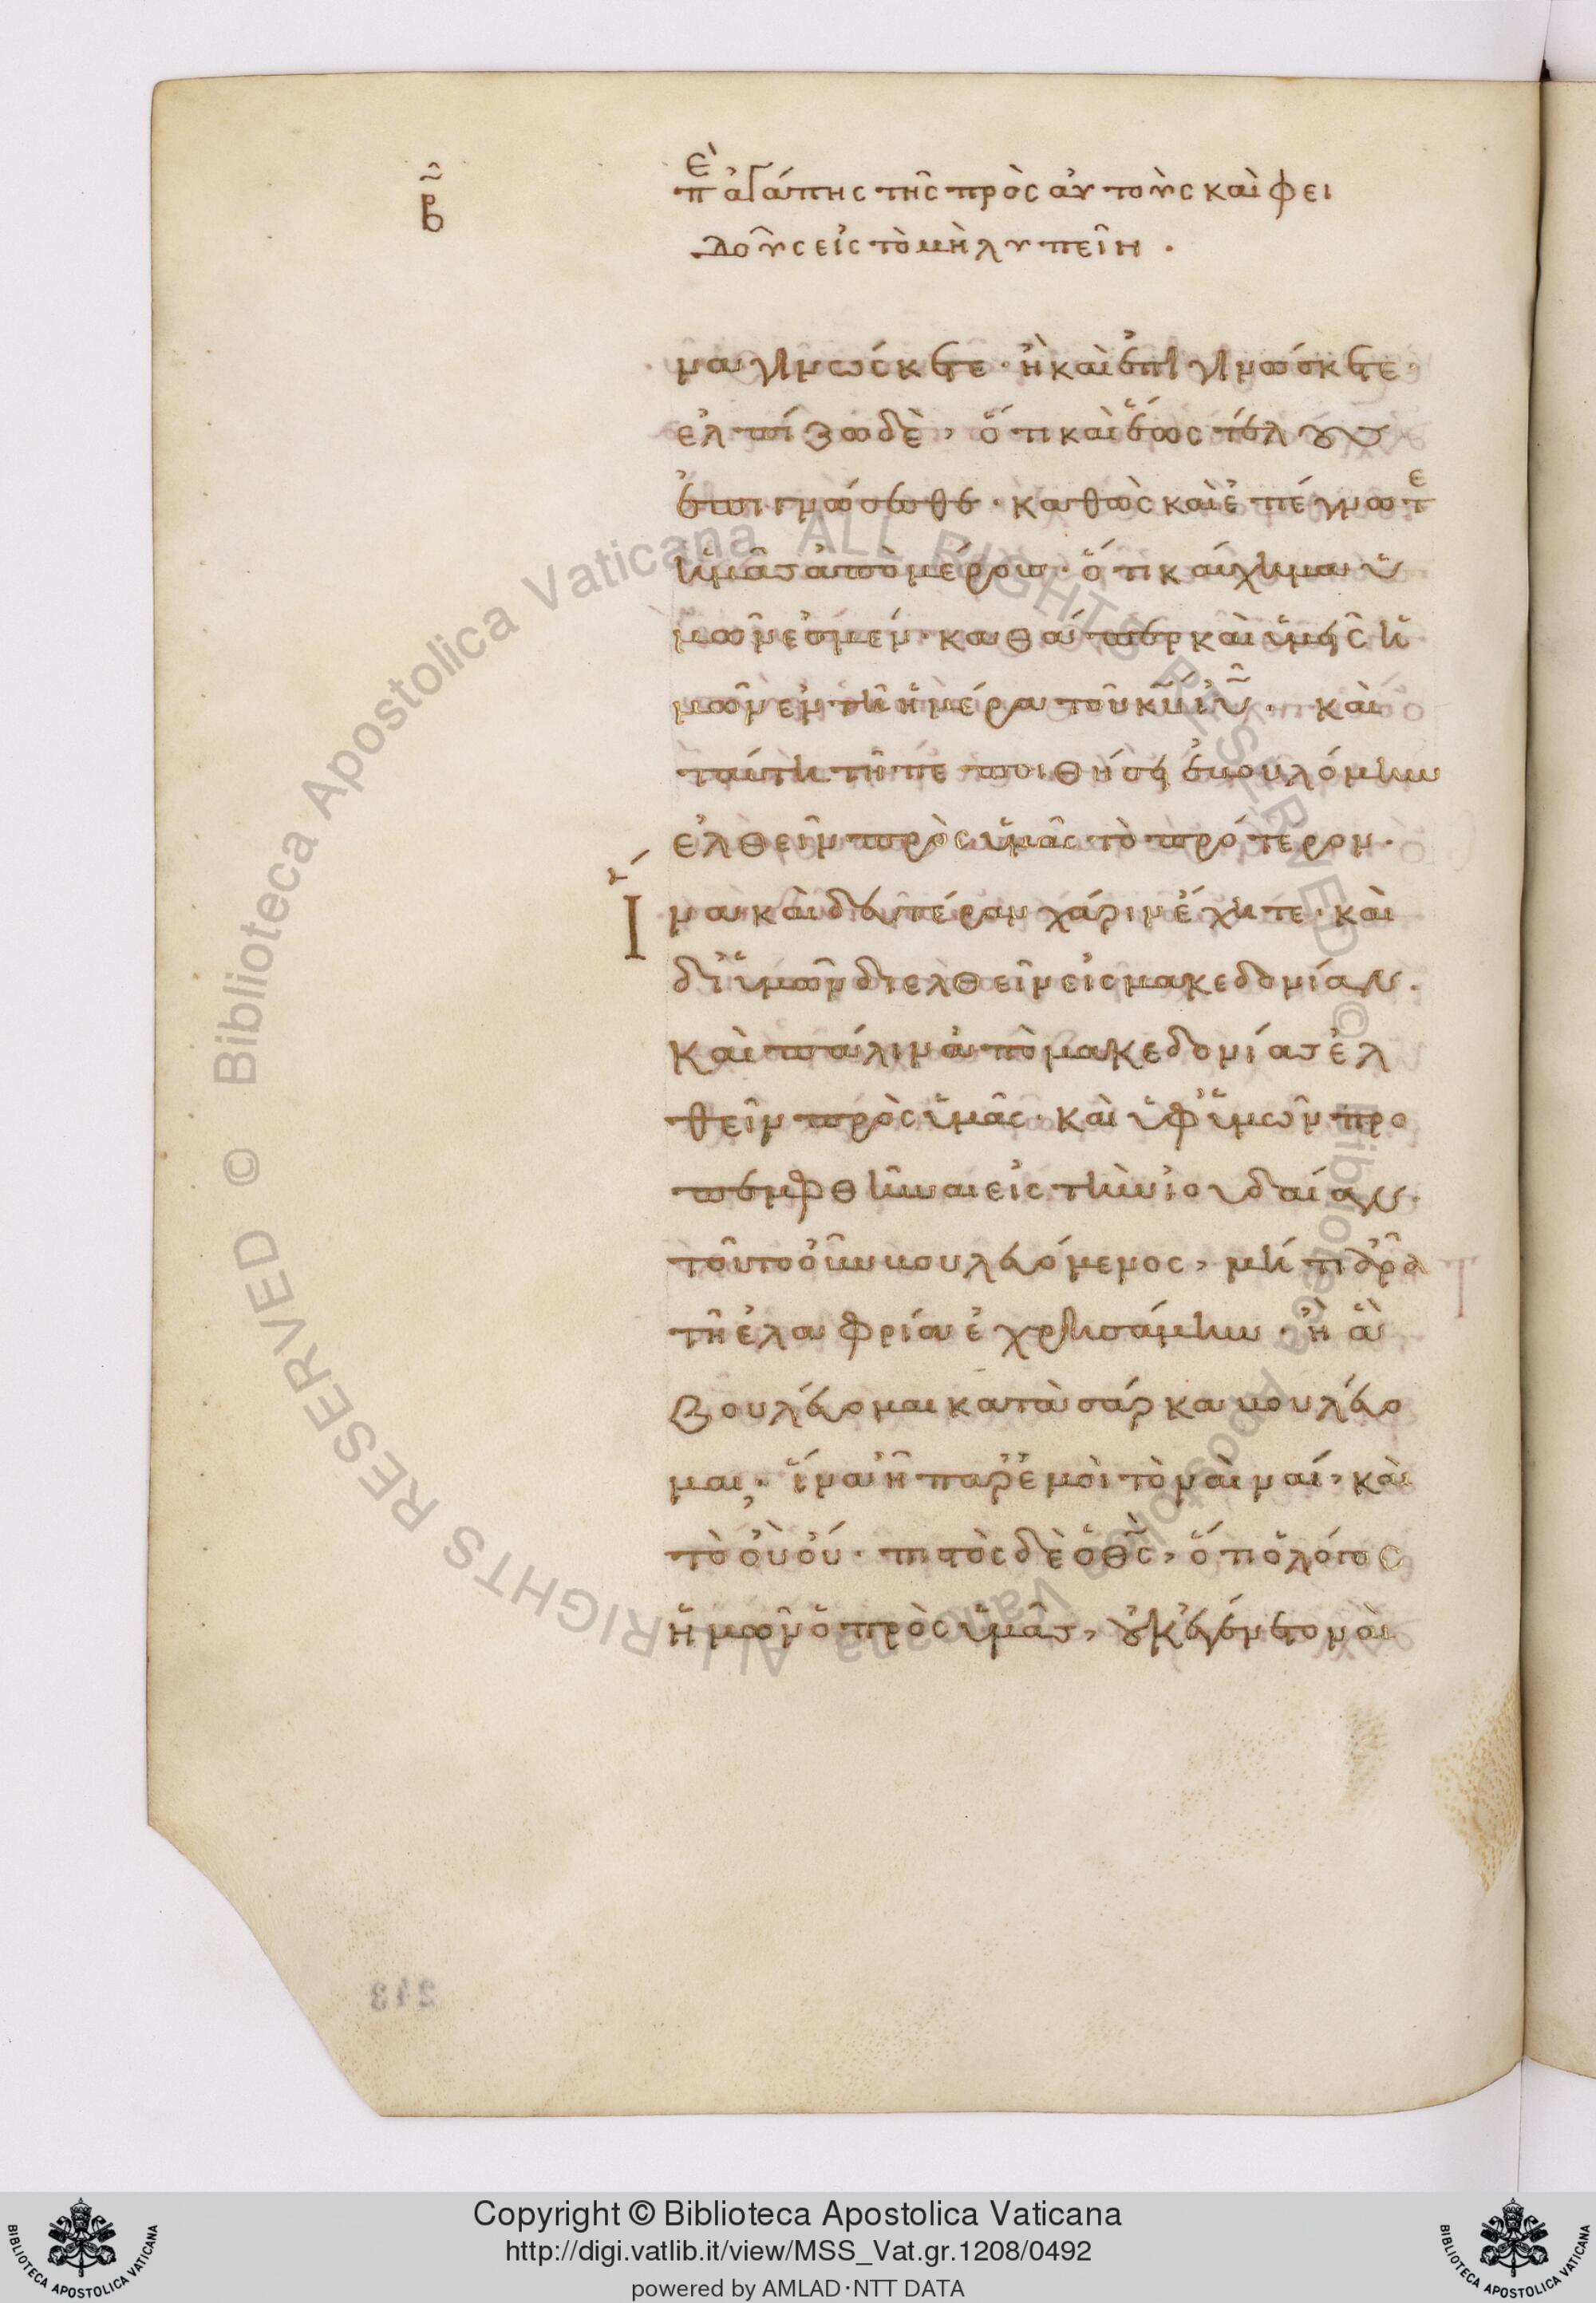 β
Ἐπ ἀγάπης τῆς πρὸς αὐτοὺς καὶ φει
δοῦς εἰς τὸ μὴ λυπεῖν.
να γινώσκετε· ἢ καὶ ἐπιγινώσκετε·
ἐλπίζω δὲ, ὅτι καὶ ἕως τέλους
ἐπιγνώσεσθε· καθὼς καὶ ἐπέγνωτε
ἡμᾶς ἀπὸ μέρους· ὅτι καύχημα ὑ
μῶν ἐσμέν· καθάπερ καὶ ὑμεῖς ἡ
μῶν ἐν τῇ ἡμέρα τοῦ κυ ιυ· καὶ
ταύτη τῆ πεποιθήσει ἐβουλόμην
ἐλθεῖν πρὸς ὑμᾶς τὸ πρότερον·
Ἵνα καὶ δευτέραν χάριν ἔχητε· καὶ
δι' ὑμῶν διελθεῖν εἰς μακεδονίαν·
καὶ πάλιν ἀπὸ μακεδονίας ἐλ
θεῖν πρὸς ὑμᾶς· καὶ ὑφ' ὑμῶν προ
πεμφθῆναι εἰς τὴν ἰουδαίαν·
τοῦτο οὖν βουλευόμενος, μή τι ἄρα
τῆ ἐλαφρία ἐχρησάμην· ἢ ἃ
βουλεύομαι κατὰ σάρκα βουλεύο
μαι, ἵνα ἦ παρ' ἐμοὶ τὸ ναὶ ναί, καὶ
τὸ οὒ οὔ· πιστὸς δὲ ὁ θς, ὅτι ὁ λόγος
ἡμῶν ὁ πρὸς ὑμᾶς, οὐκ ἐγένετο ναὶ
213
© Biblioteca Apostolica Vaticana ALL RIGHTS RESERVED © Biblioteca Apostolica Vaticana ALL RIGHTS RESERVED
Copyright © Biblioteca Apostolica Vaticana
http://digi.vatlib.it/view/MSS_Vat.gr.1208/0492
powered by AMLAD·NTT DATA
BIBLIOTECA APOSTOLICA VATICANA
BIBLIOTECA APOSTOLICA VATICANA